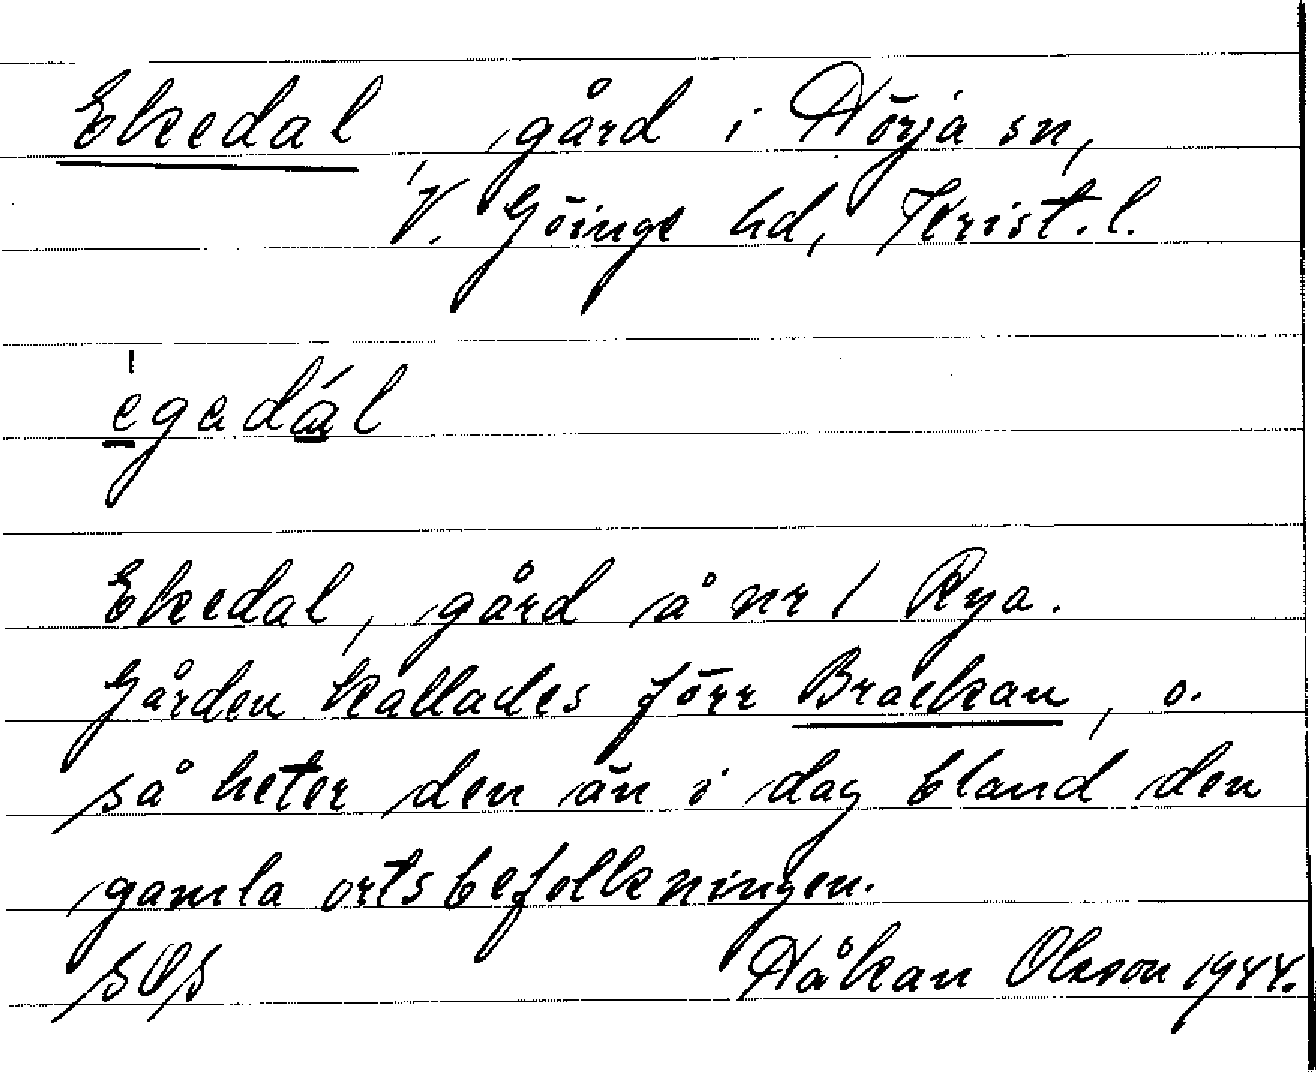 Ekedal, gård i Hörja sn,
V. Göinge hd, Krist. l.
egadál
Ekedal, gård å nr 1 Rya.
Gården kallades förr Brackan, o.
så heter den än i dag bland den
gamla ortsbefolkningen.
Håkan Olsson 1944.